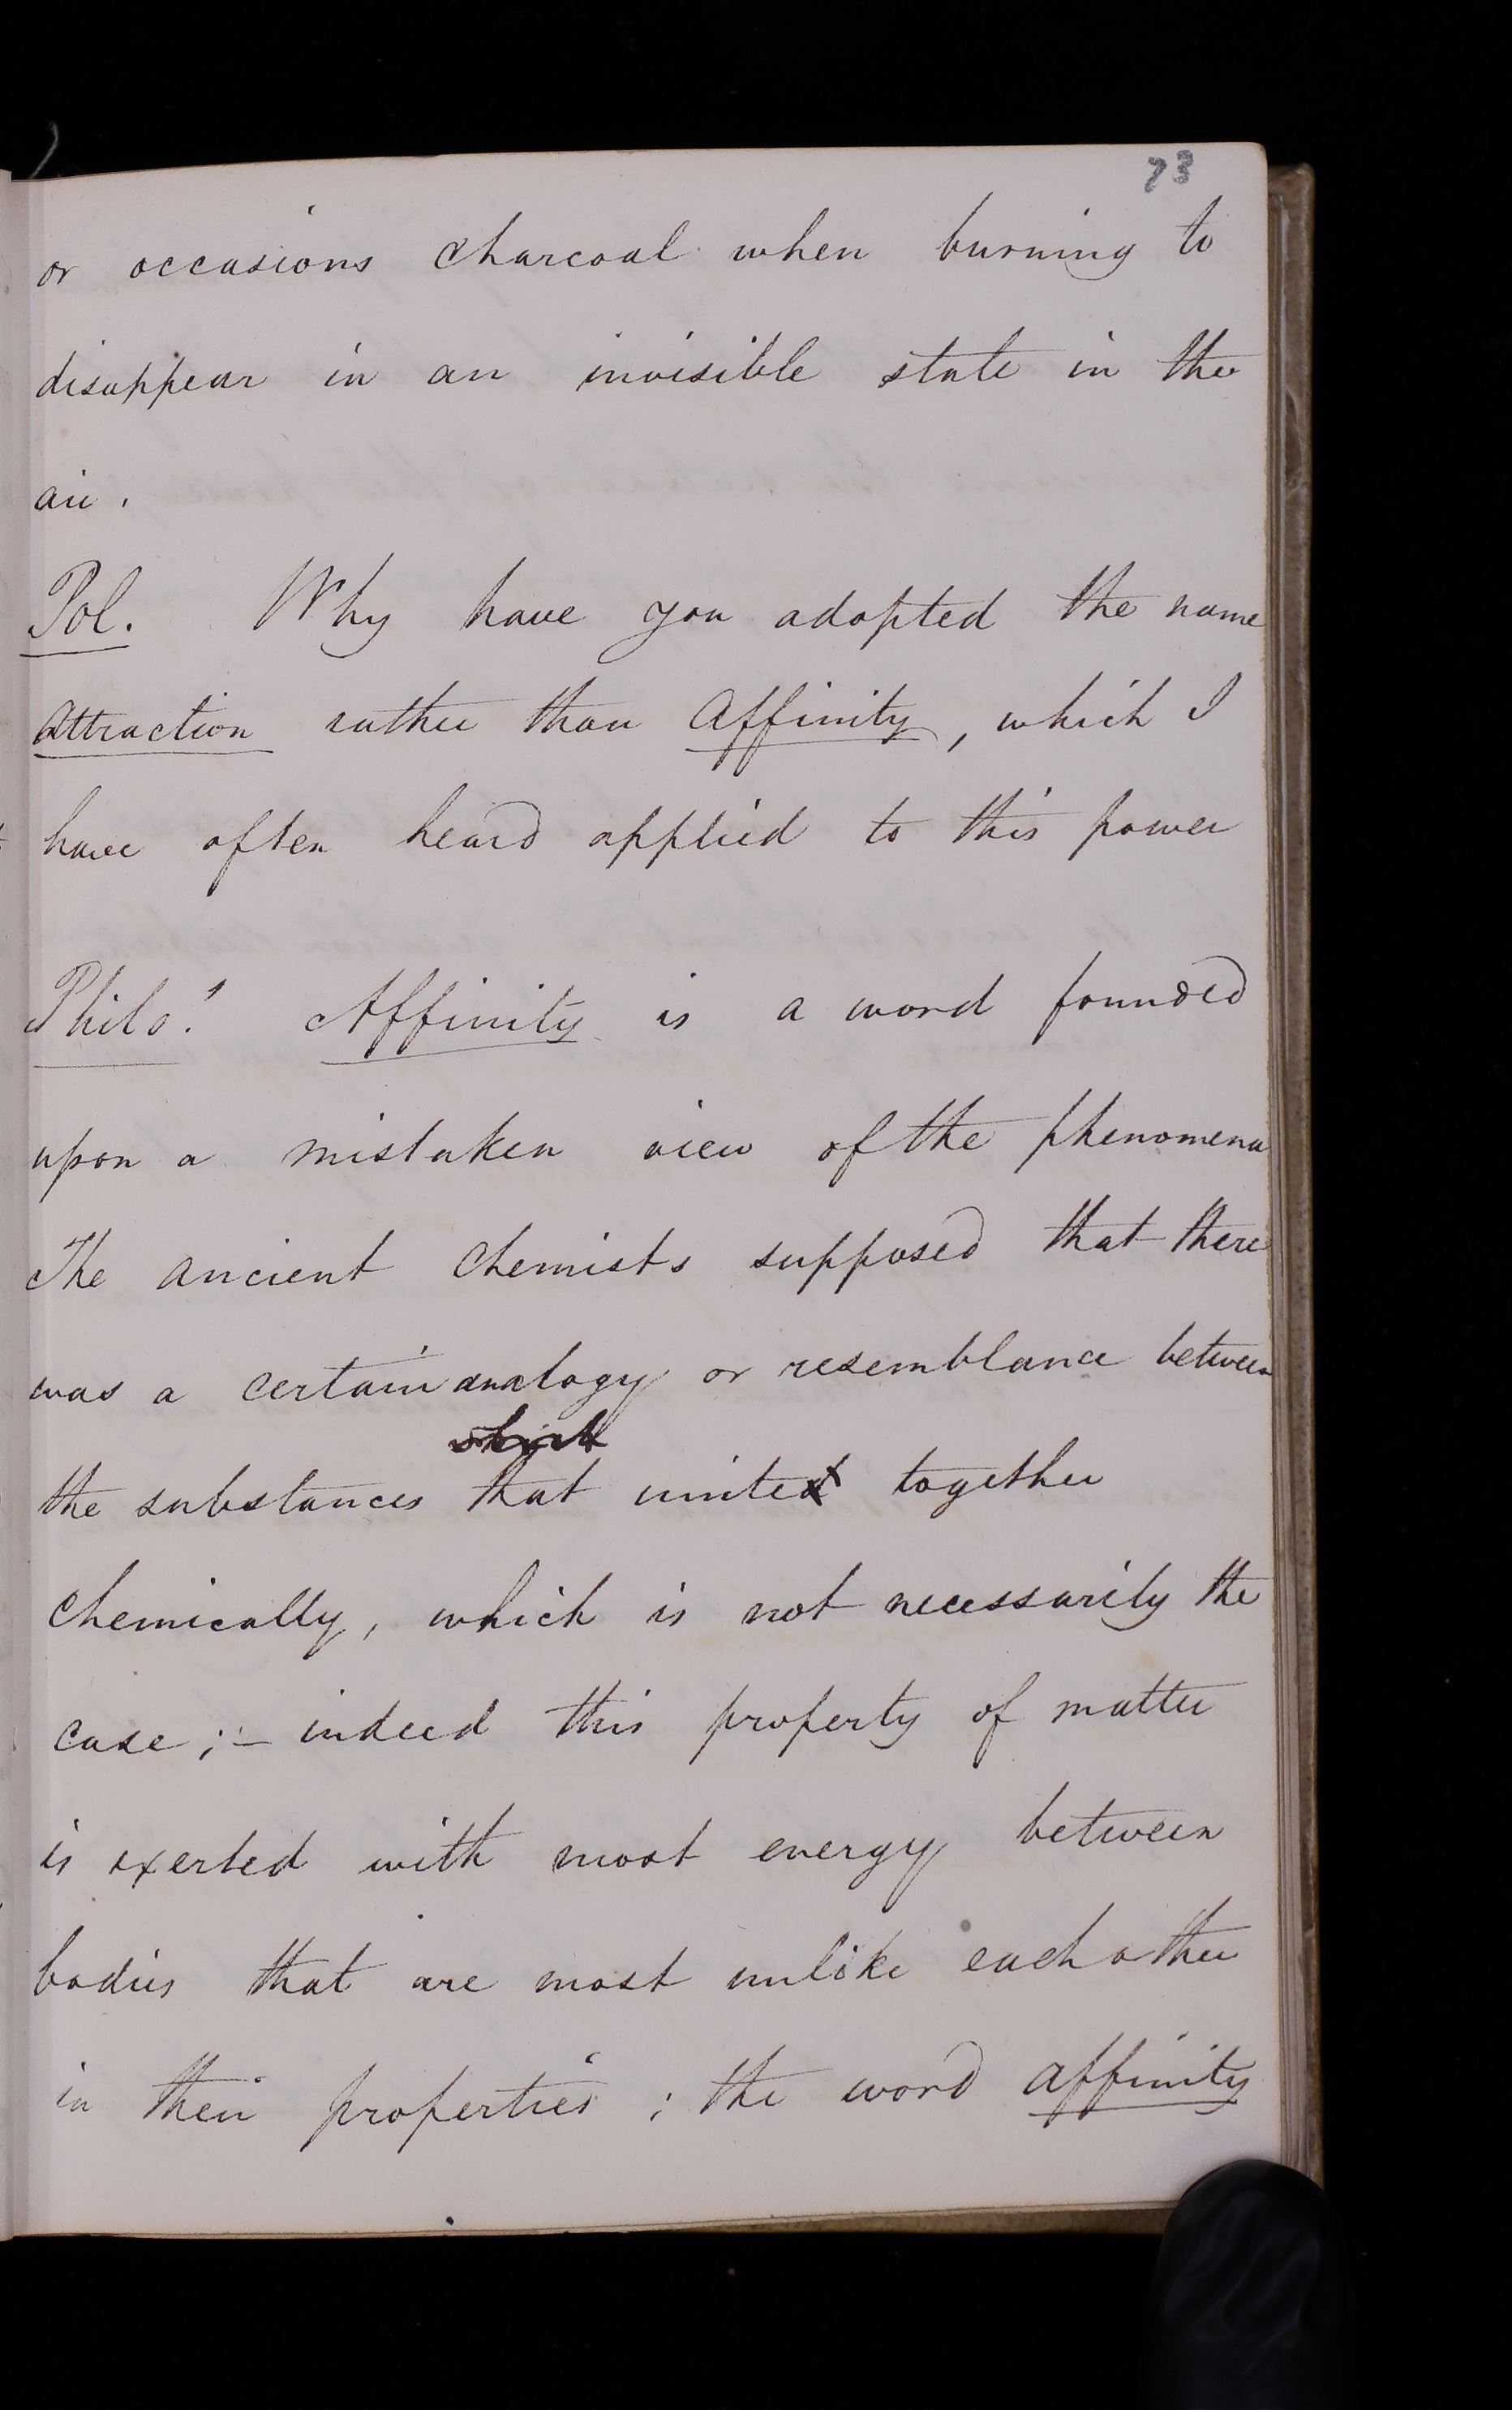 73
or occasions charcoal when burning to
disappear in an invisible state in the
air.
Pol. Why have you adopted the name
attraction rather than affinity, which I
have often heard applied to this power
Philo. Affinity is a word founded
upon a mistaken view of the phenomena
The ancient chemists supposed that there
was a certain analogy or resemblance between
the substances that unite together
chemically, which is not necessarily the
case;- indeed this property of matter
is exerted with most energy between
bodies that are most unlike each other
in their properties; the word affinity